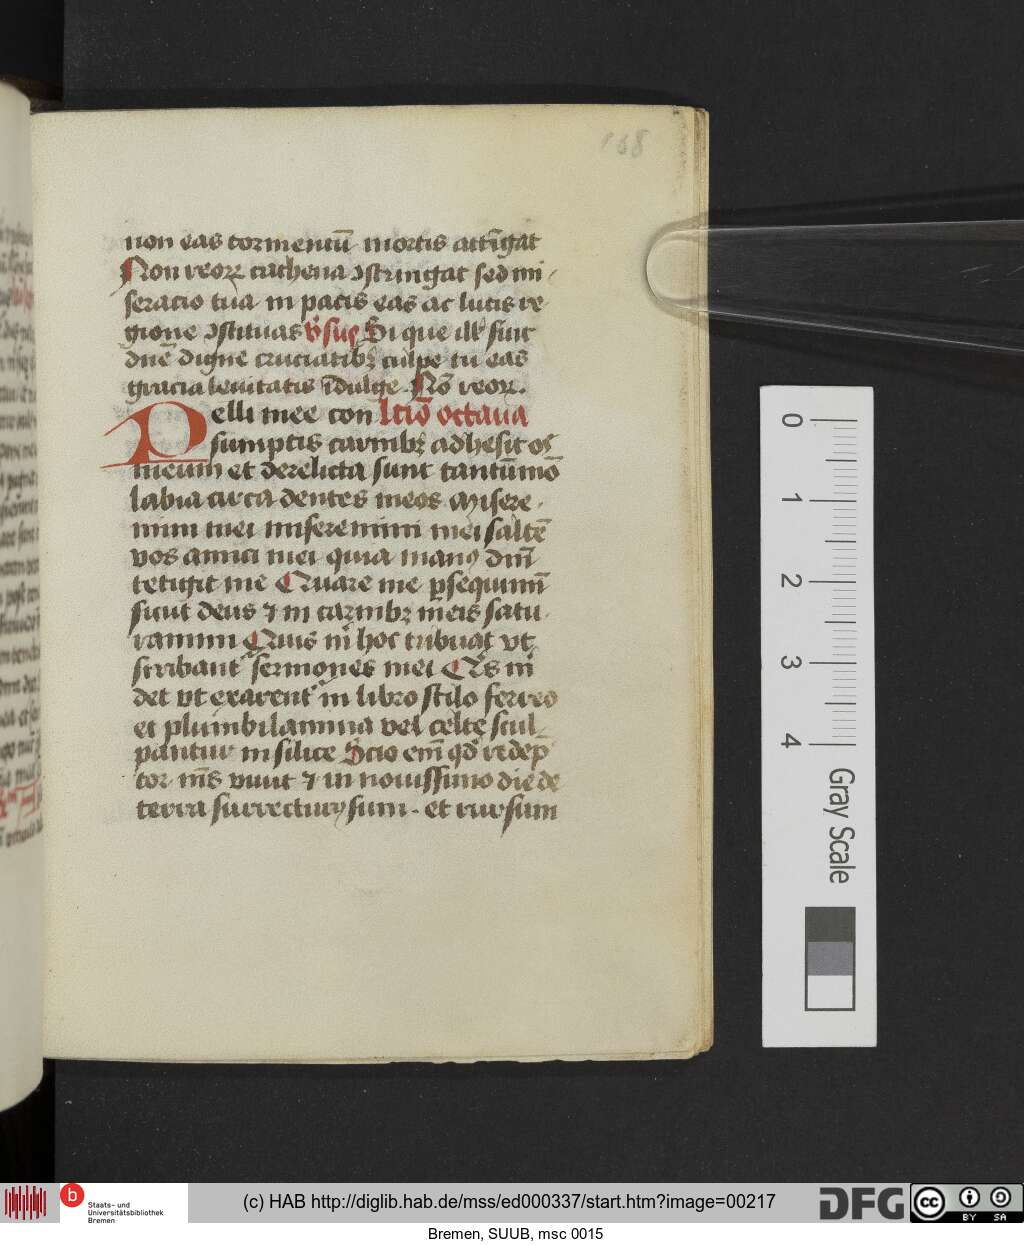 168
non eas tormentū mortis attīgat
Non reorꝝ cathena ꝯstringat sed mi
seracio tua in pacis eas ac lucis re
gione ꝯstituas v̓sus Si que ill̓ sint
dn̄e digne cruciatibꝫ culpe tu eas
gracia lenitatis īdulge Nō reorꝝ.
Pelli mee con lcıō octaua
sumptis carnibꝫ adhesit os
meum et derelicta sunt tantūmō
labia circa dentes meos Misere
mini mei miseremini mei saltē
vos amici mei quia manꝰ dnī
tetigit me Quare me ꝑsequimī
sicut deus ⁊ in carnibꝫ meis satu
ramini Quis m̄ hoc tribuat vt
scribant᷑ sermones mei Q̄s m̄
det vt exarent᷑ in libro stilo ferreo
et plumbi lamina vel celte scul
pantur in silice Scio em̄ qd̓ redēp
tor m̄s viuit ⁊ in nouissimo die de
terra surrecturꝰ sum. et rursum
0
1
2
3
4
Gray Scale
b Staats- und
Universitätsbibliothek
Bremen
(c) HAB http://diglib.hab.de/mss/ed000337/start.htm?image=00217
DFG
cc BY SA
Bremen, SUUB, msc 0015